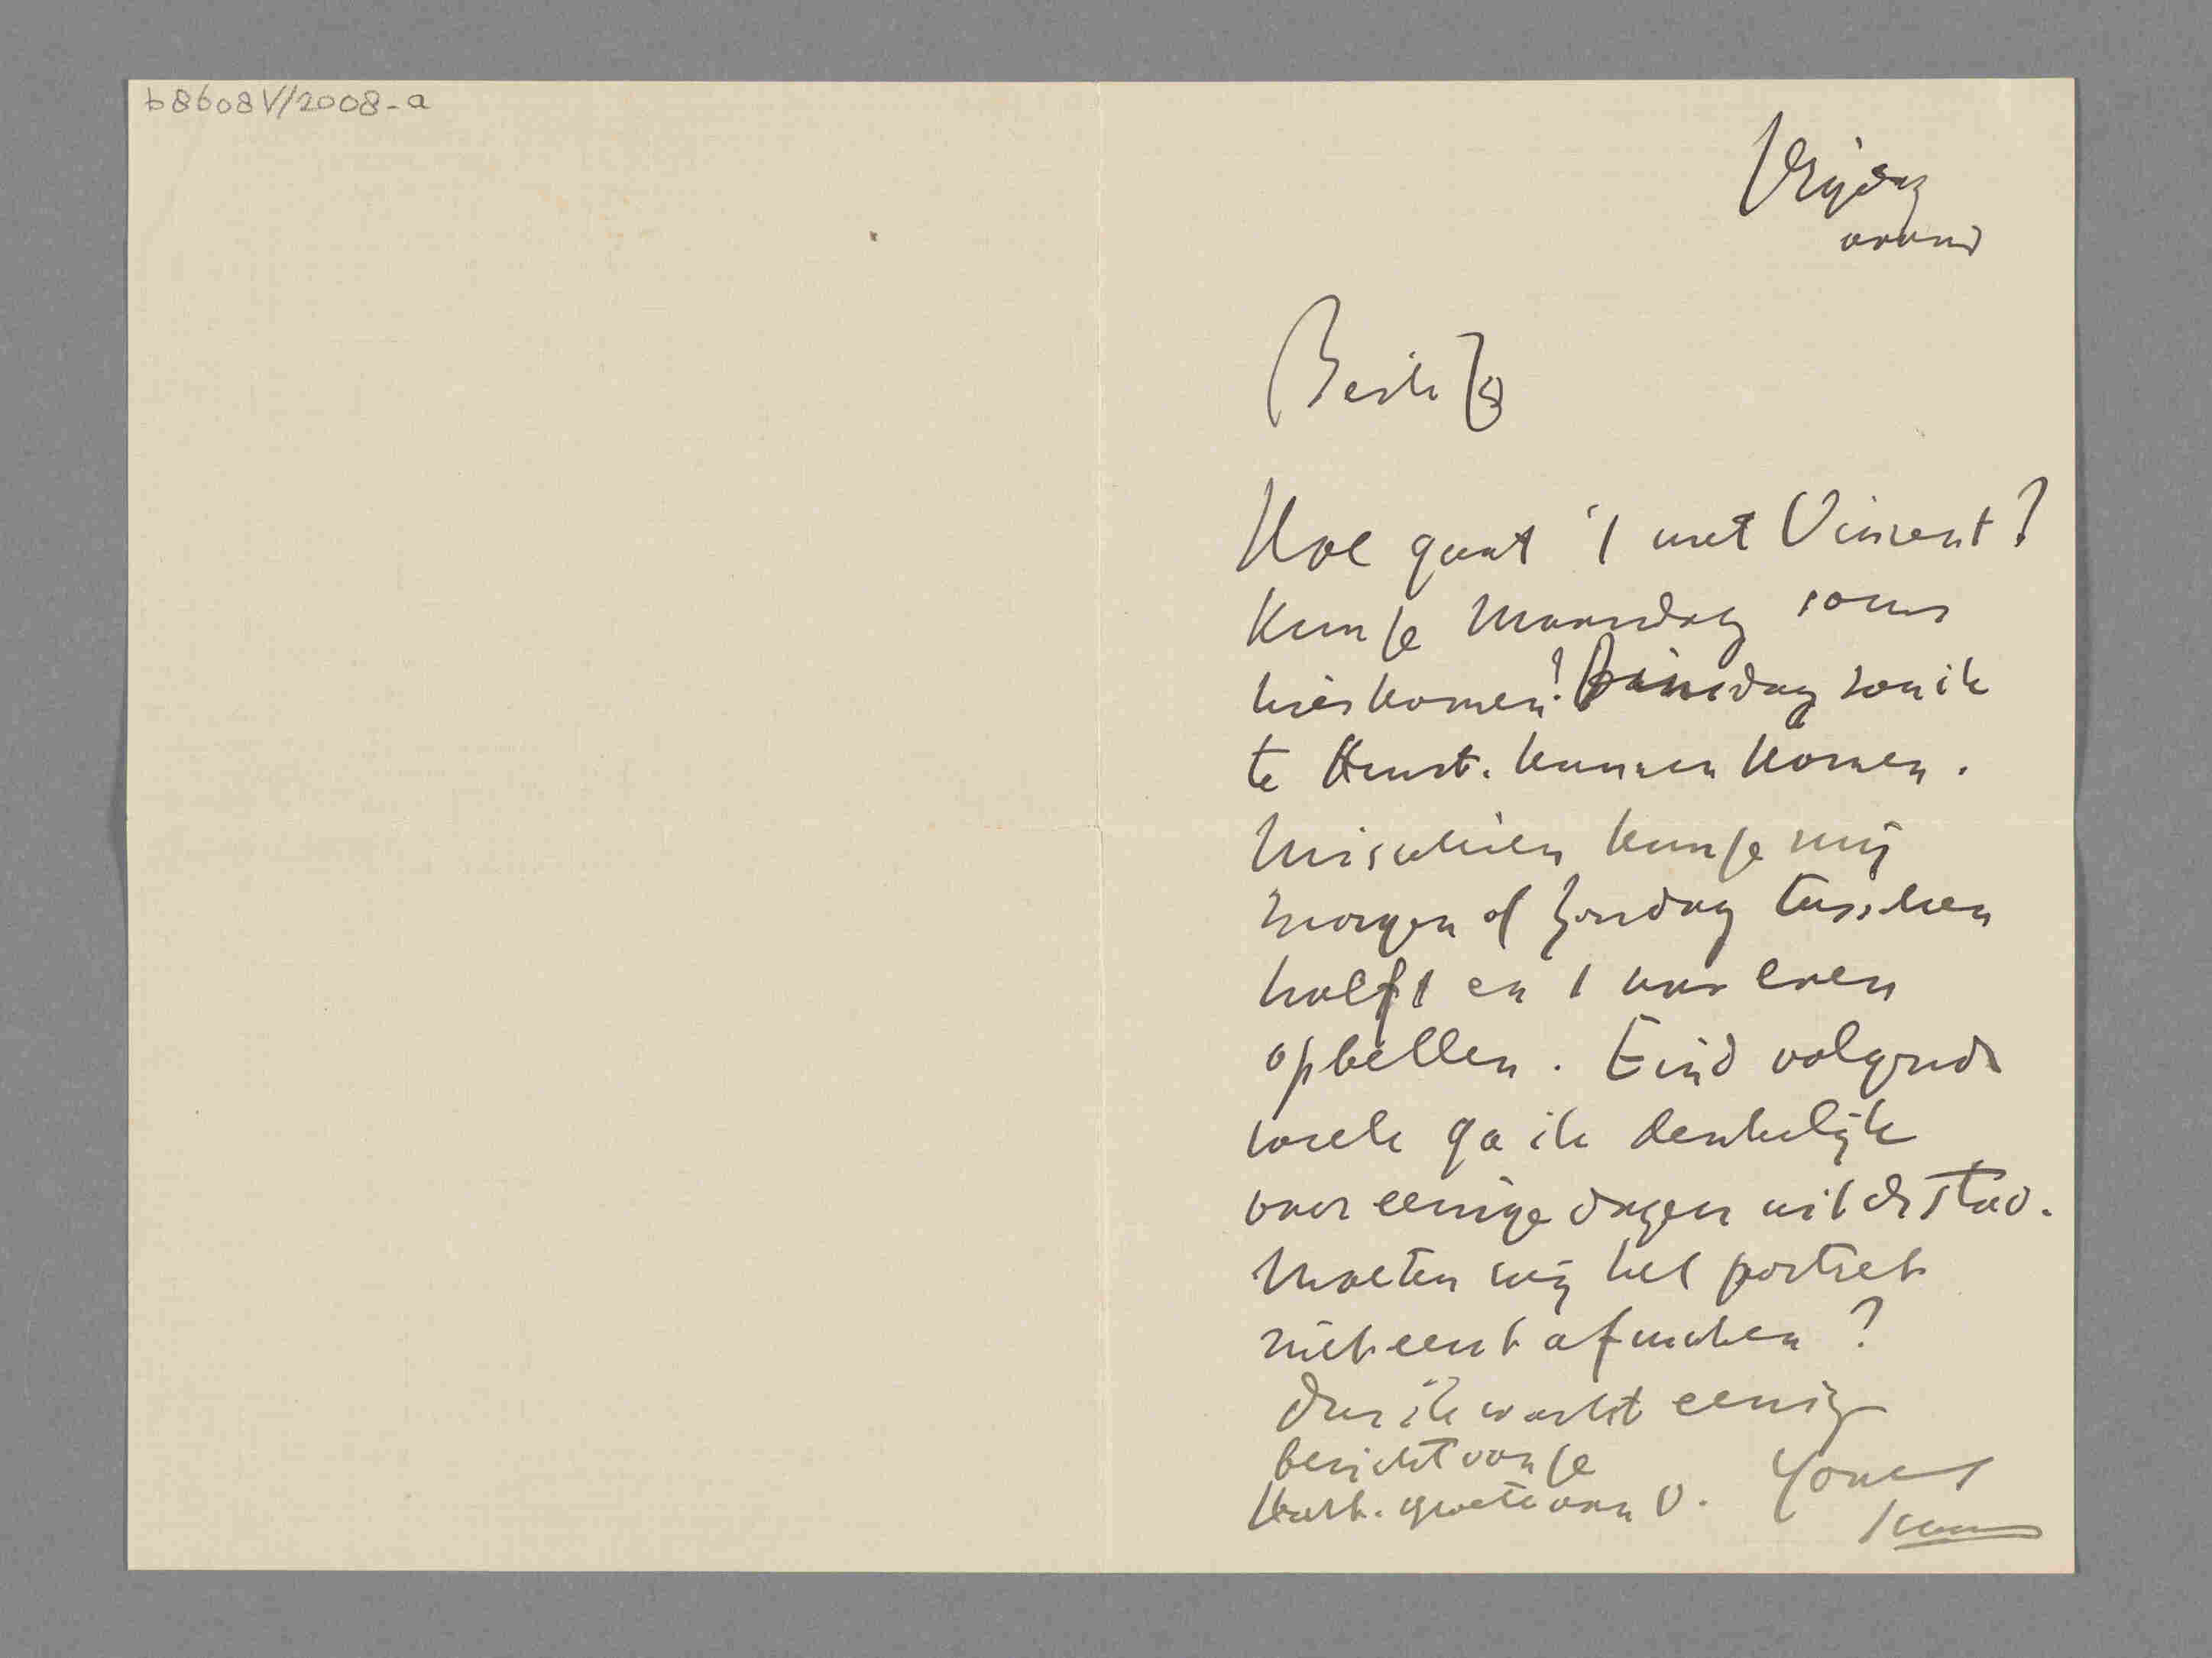 b8608 V/2008-a
Vrijdag
avond
Beste Jo
Hoe gaat 't met Vincent?
Kun je Maandag soms
hier komen? Dinsdag zou ik
te Amst. kunnen komen.
Misschien kun je mij
morgen of Zondag tusschen
half 1 en 1 uur even
opbellen. Eind volgende
week ga ik denkelijk
voor eenige dagen uit de stad.
Moeten wij het portret
niet eens afmaken?
Dus ik wacht eenig
bericht van je
Hart. groete van
Isaac